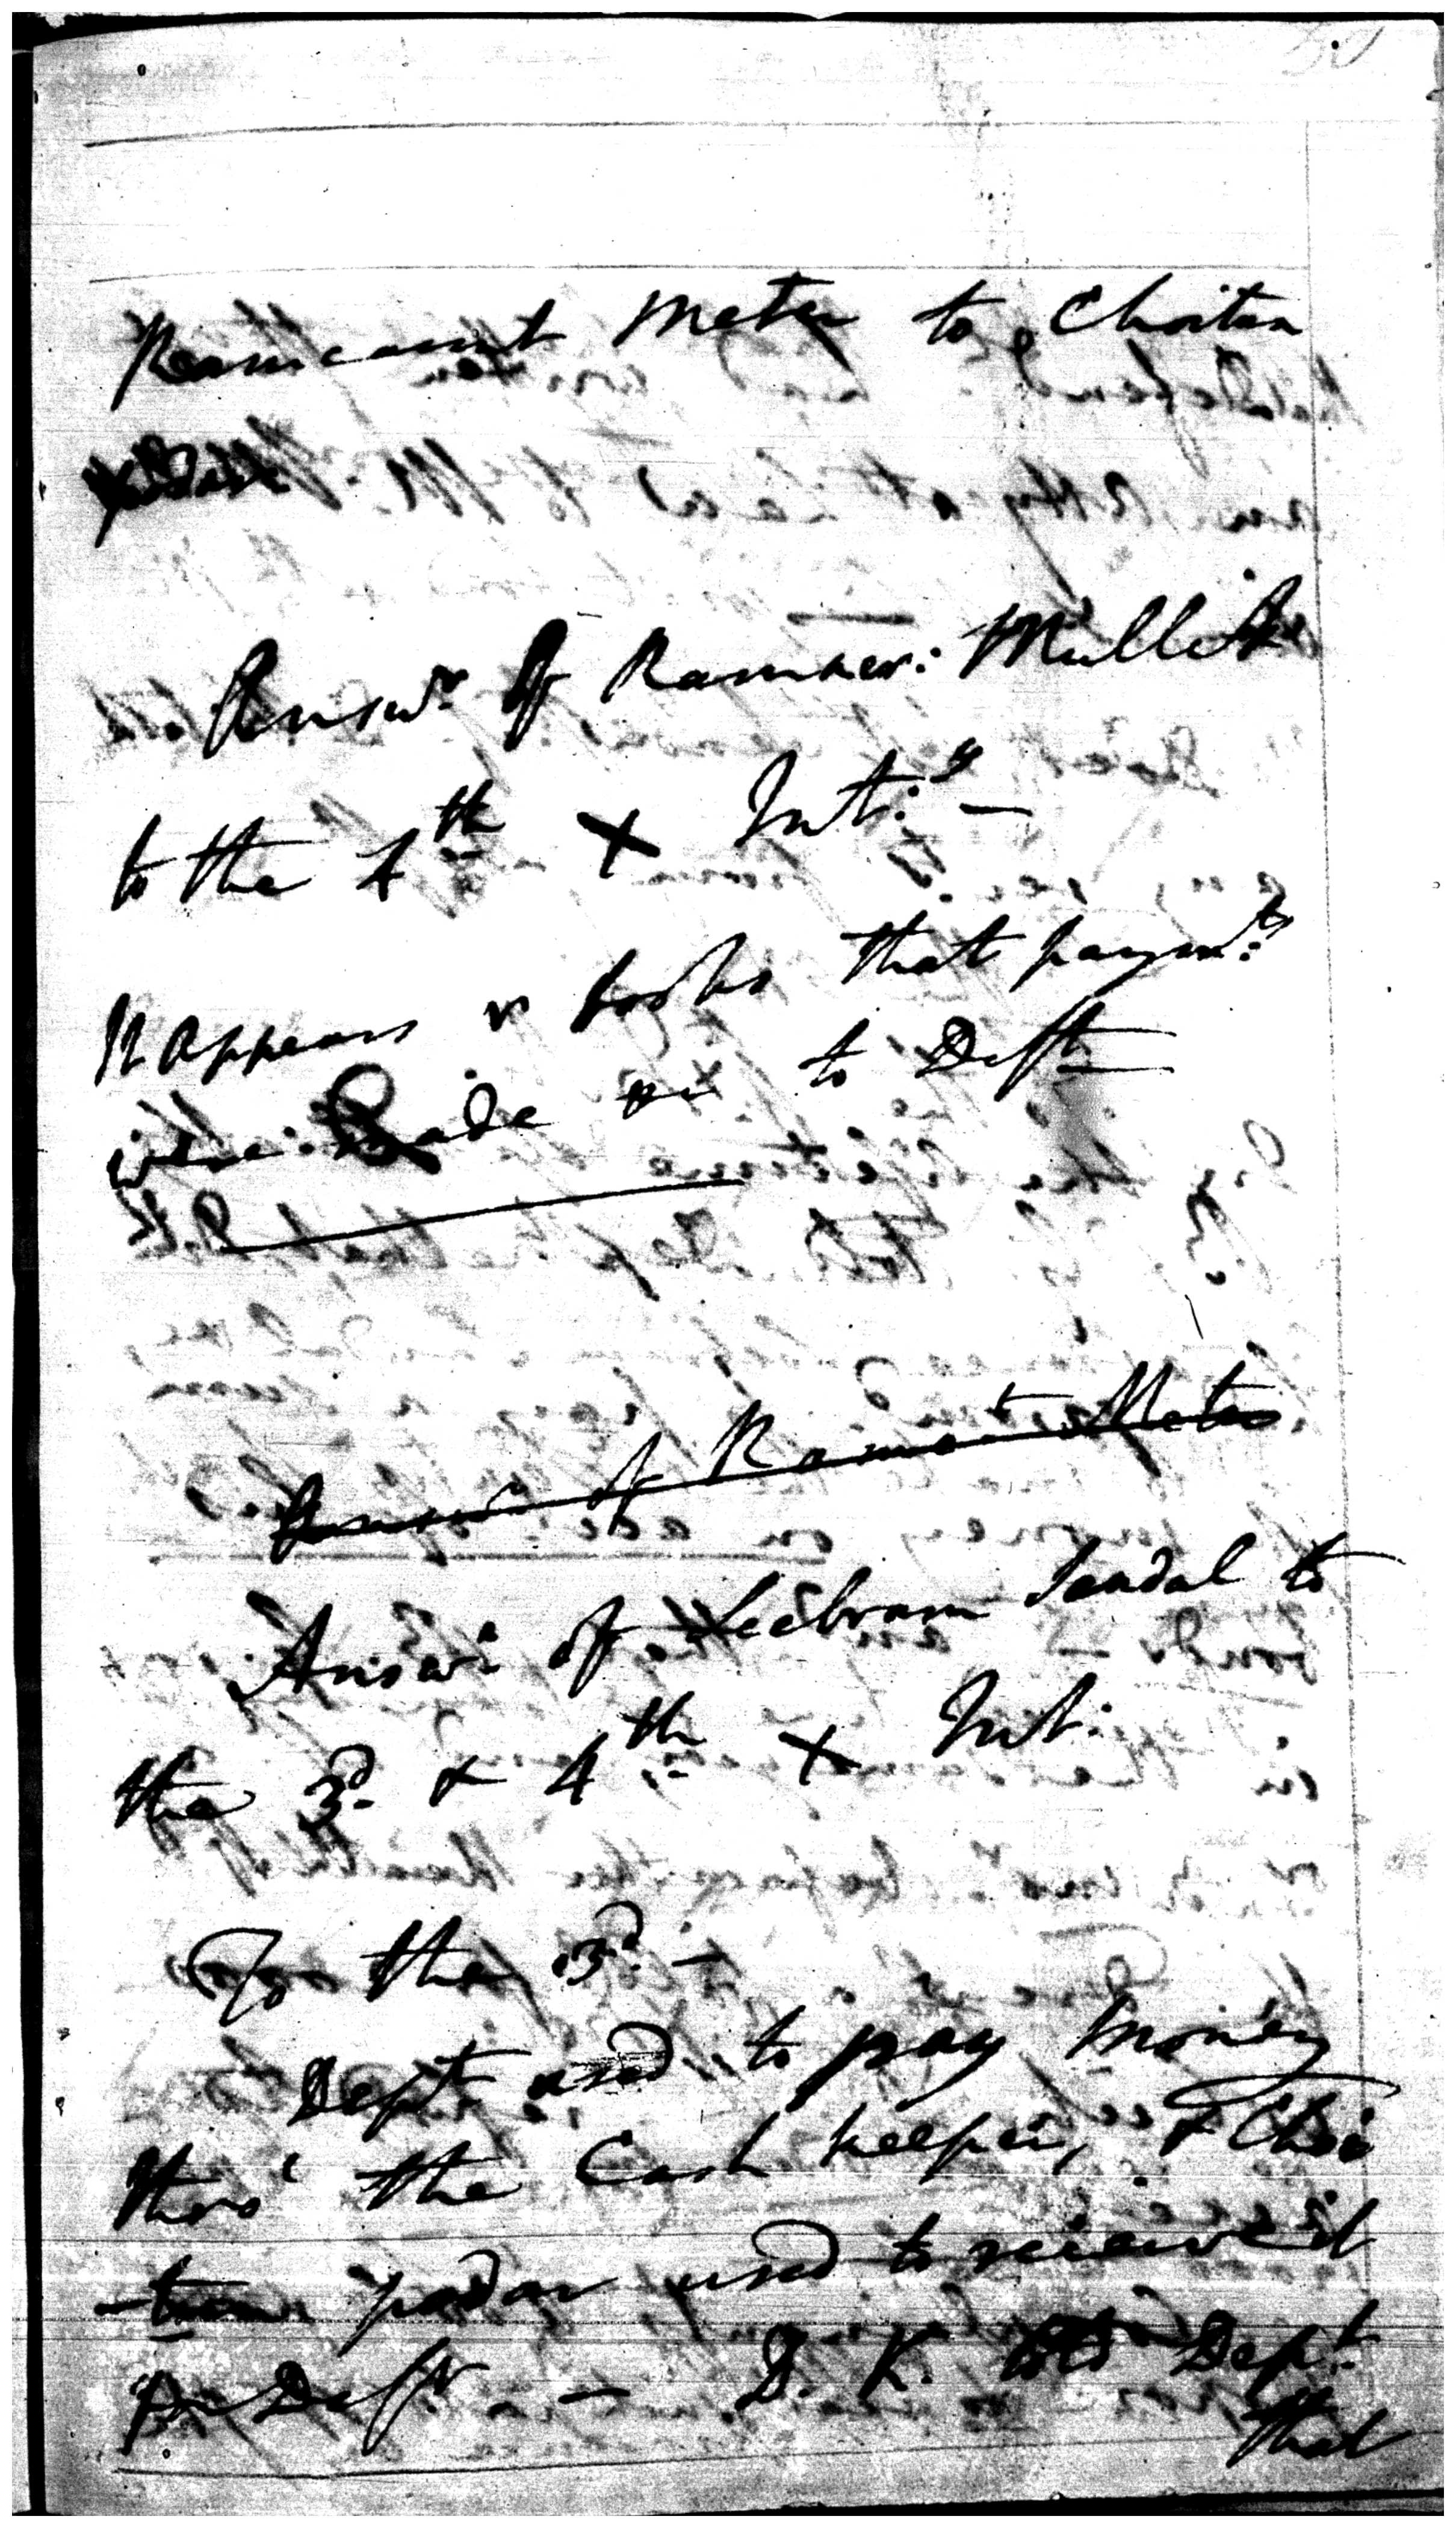 Ramcaunt Meter to Choiten
Answr. of Ramner: Mullik
to the 4th X Int:y —
It appears books that paym:ts
were: made to Deft
Answr. of Ramct Meter
Answr. of Seebram Sandal to
the 3d. & 4th X Int:
To the 3d. —
Dept used to pay money
thro' the Cash keeper, & Choi
-ten podar used to receive it
for Deft — D. K. told Dept.
that